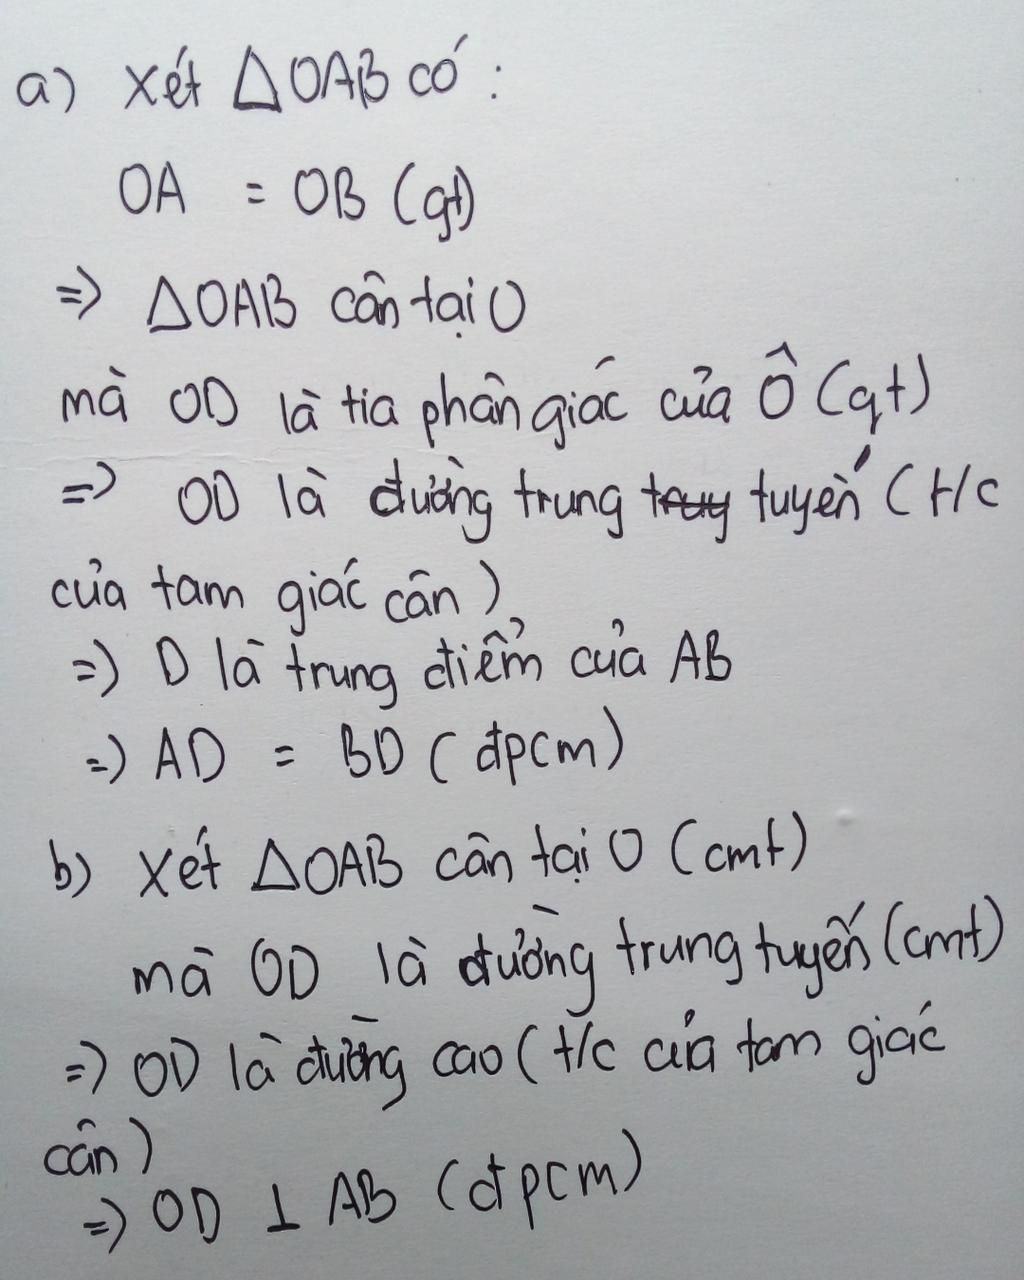 a) Xét △OAB có :
OA = OB (gt)
=> △OAB cân tại O
mà OD là tia phân giác của Ô (gt)
=> OD là đường trung tuyến (t/c
của tam giác cân)
=) D là trung điểm của AB
=) AD = BD (đpcm)
b) Xét △OAB cân tại O (cmt)
mà OD là đường trung tuyến (cmt)
=) OD là đường cao (t/c của tam giác
cân)
=) OD ⊥ AB (đpcm)